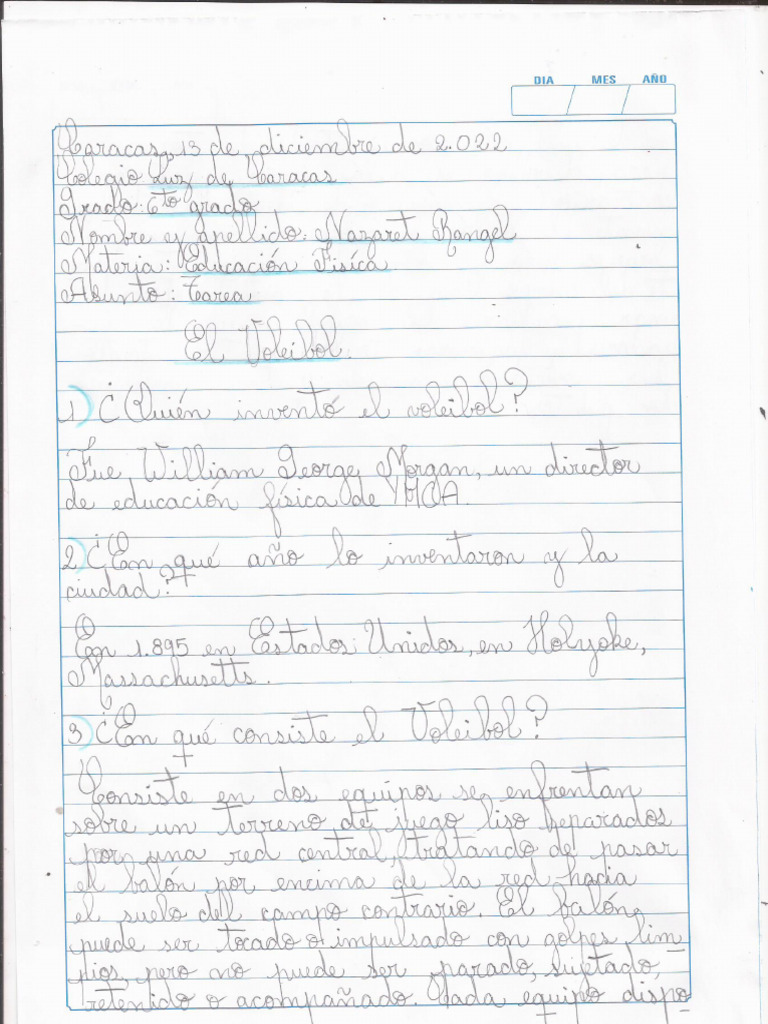 DIA MES AÑO
Caracas, 13 de diciembre de 2.022
Colegio Luz de Caracas
Grado: 6to grado
Nombre y apellido: Nazaret Rangel
Materia: Educación Física
Asunto: Tarea
El Voleibol.
1) ¿Quién inventó el voleibol?
Fue William George Morgan, un director
de educación física de YMCA.
2) ¿En qué año lo inventaron y la
ciudad?
En 1.895 en Estados Unidos, en Holyoke,
Massachusetts.
3) ¿En qué consiste el Voleibol?
Consiste en dos equipos se enfrentan
sobre un terreno de juego liso separados
por una red central, tratando de pasar
el balón por encima de la red hacia
el suelo dell campo contrario. El balón
puede ser tocado o impulsado con golpes lim
pios, pero no puede ser parado, sujetado,
retenido o acompañado. Cada equipo dispo